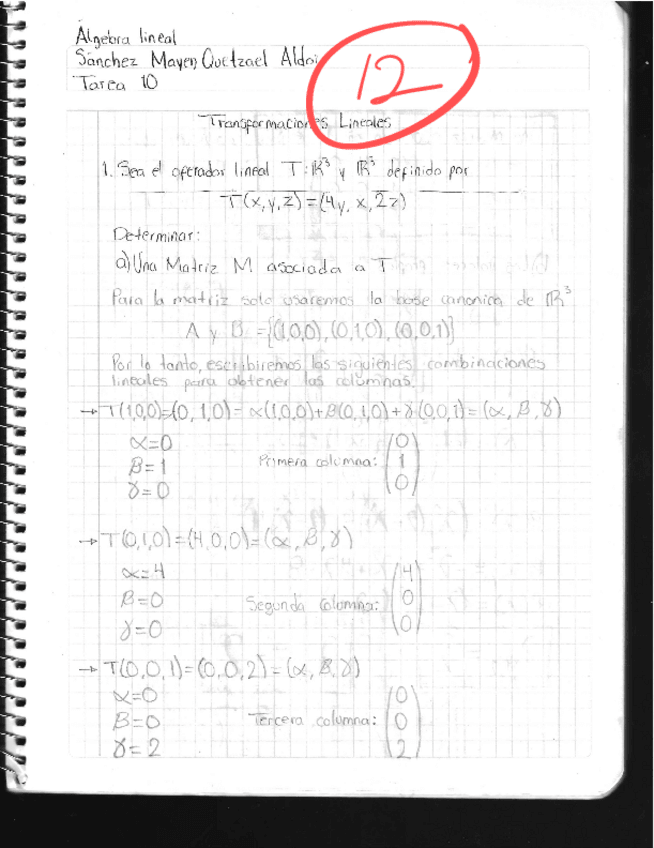 Álgebra lineal
Sánchez Mayen Quetzael Aldoi
Tarea 10
12
Transformaciones Lineales
1. Sea el operador lineal T: ℝ³ y ℝ³ definido por
T(x,y,z)=(4y, x, 2z)
Determinar:
a) Una Matriz M asociada a T
Para la matriz solo usaremos la base canonica de ℝ³
A y B = {(1,0,0), (0,1,0), (0,0,1)}
Por lo tanto, escribiremos las siguientes combinaciones
lineales para obtener las columnas
→ T(1,0,0)=(0,1,0)= α(1,0,0)+β(0,1,0)+γ(0,0,1)=(α, β, γ)
α=0
β=1
γ=0
Primera columna: (0 1 0)
→ T(0,1,0)=(4,0,0)=(α, β, γ)
α=4
β=0
γ=0
Segunda columna: (4 0 0)
→ T(0,0,1)=(0,0,2)=(α, β, γ)
α=0
β=0
γ=2
Tercera columna: (0 0 2)